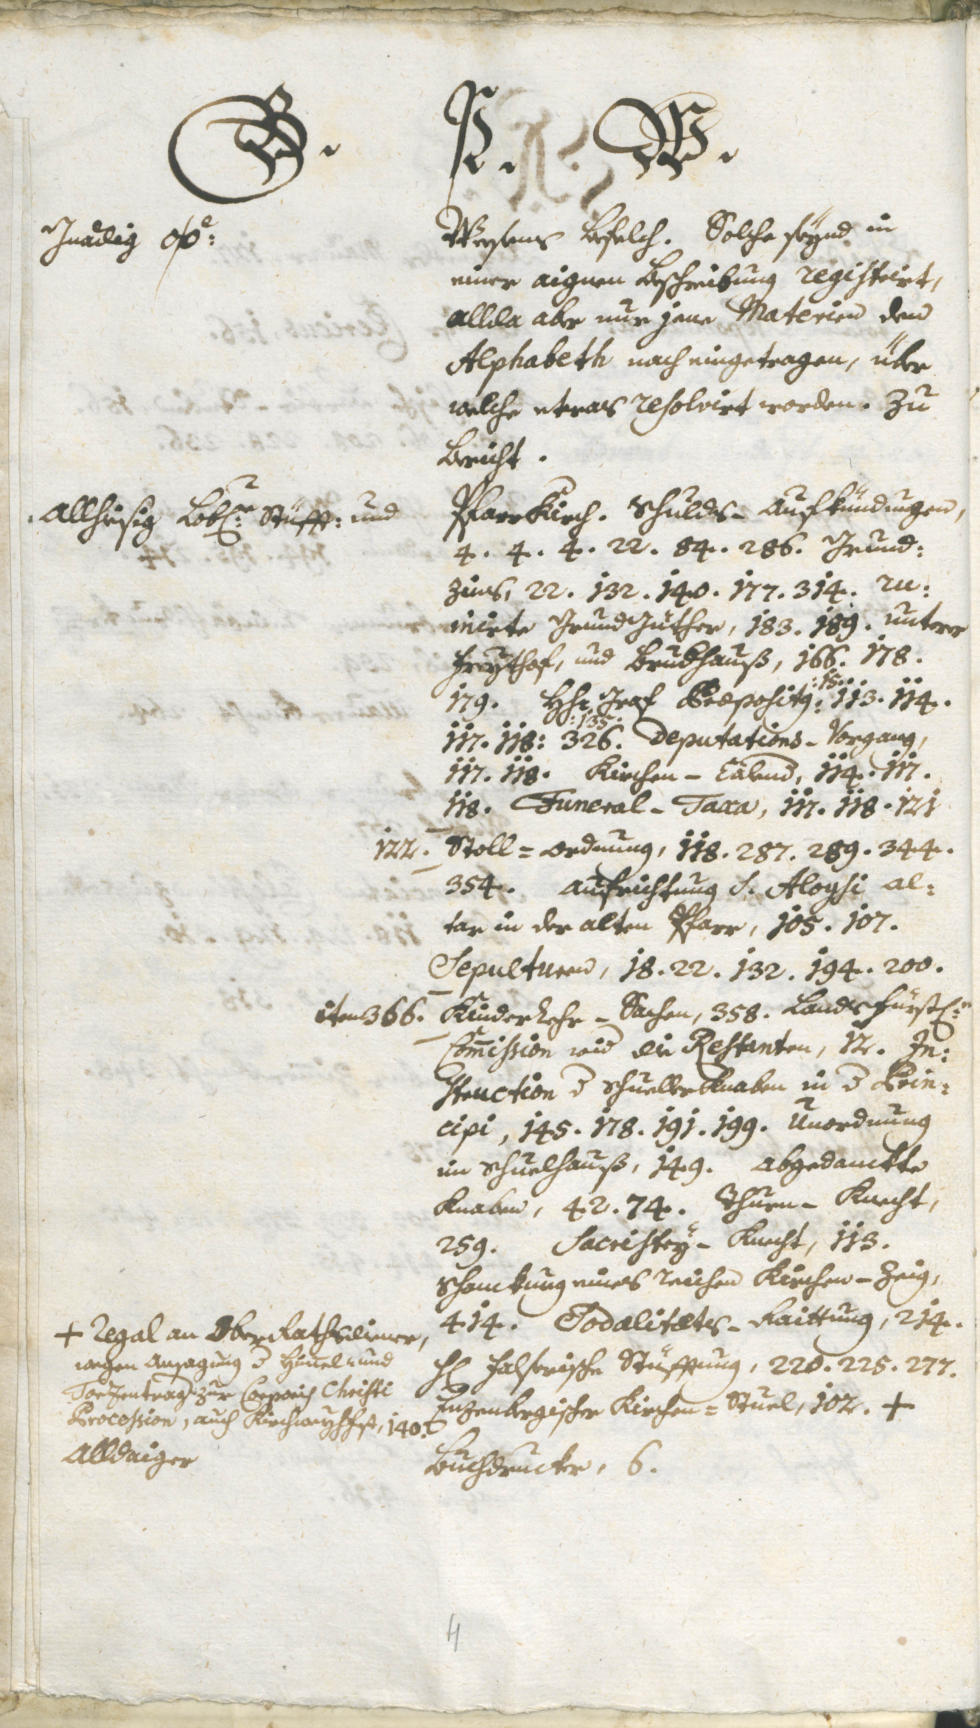 B. P. W.
Gnädig ope:
Weesens Befelch. Solche seynd in
einer aignen Beschreibung registrirt,
allda aber nur jene Materien dem
Alphabeth nach eingetragen, über
welche etwas resolvirt worden. Zu
Bericht.
Allhiesig Löbl: Stüfft: und
Pfarrkirch. Schulds-Aufkündungen,
4. 4. 4. 22. 84. 286. Grund:
zins, 22. 132. 140. 177. 314. ru:
inirte Grund Güther, 183. 189. unterer
Freythof, und Bruckhauß, 166. 178.
:15.
179. Graf 113. 114.
:135.
117. 118: 326. Deputations-Vorgang,
117. 118. Kirchen- 114. 117.
118. Funeral-Taxa, 117. 118. 121
122. Stoll=ordnung, 118. 287. 289. 344.
354. Aufrichtung S. Aloysi al:
tar in der alten Pfarr, 105. 107.
Sepulturen, 18. 22. 132. 194. 200.
item 366. Kinderlehr-Sachen, 358. Landsfürstl:
Commission wid die Restanten, 12. In:
struction d Schuellerknaben in d Prin:
cipi, 145. 178. 191. 199. Unordnung
im Schuelhauß, 149. abgedanckte
Knaben, 42. 74. Thurn-Knecht,
259. Sacristey-Knecht, 113.
Schanckung eines reichen Kirchen-Zeig,
414. Sodalitets-Raittung, 214.
+ Regal an Ober Rathsdiener,
wegen Ansagung d Himel: und
zur Corporis Christi
Procession, auch Kirchweyhfest, 140.
Stüfftung, 220. 225. 277.
Kirchen=Stuel, 102. +
Alldaiger
Buchdrucker, 6.
4